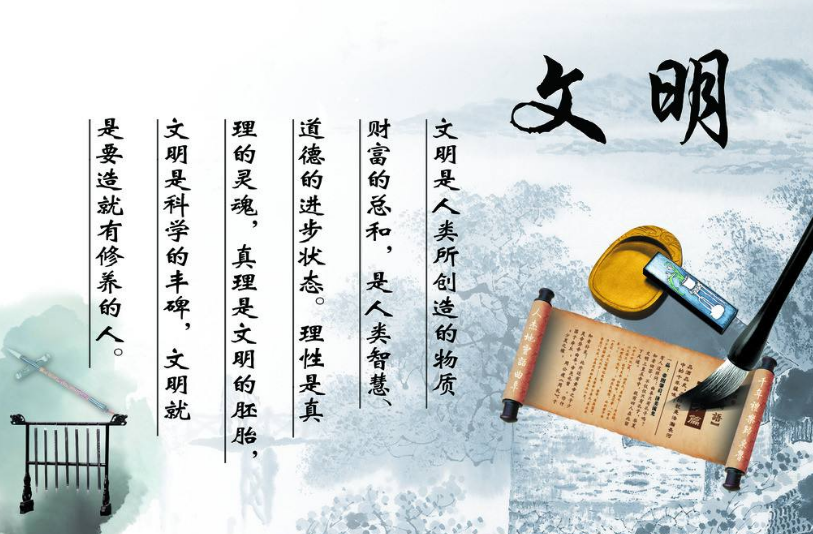 文明
文明是人类所创造的物质
财富的总和，是人类智慧、
道德的进步状态。理性是真
理的灵魂，真理是文明的胚胎，
文明是科学的丰碑，文明就
是要造就有修养的人。